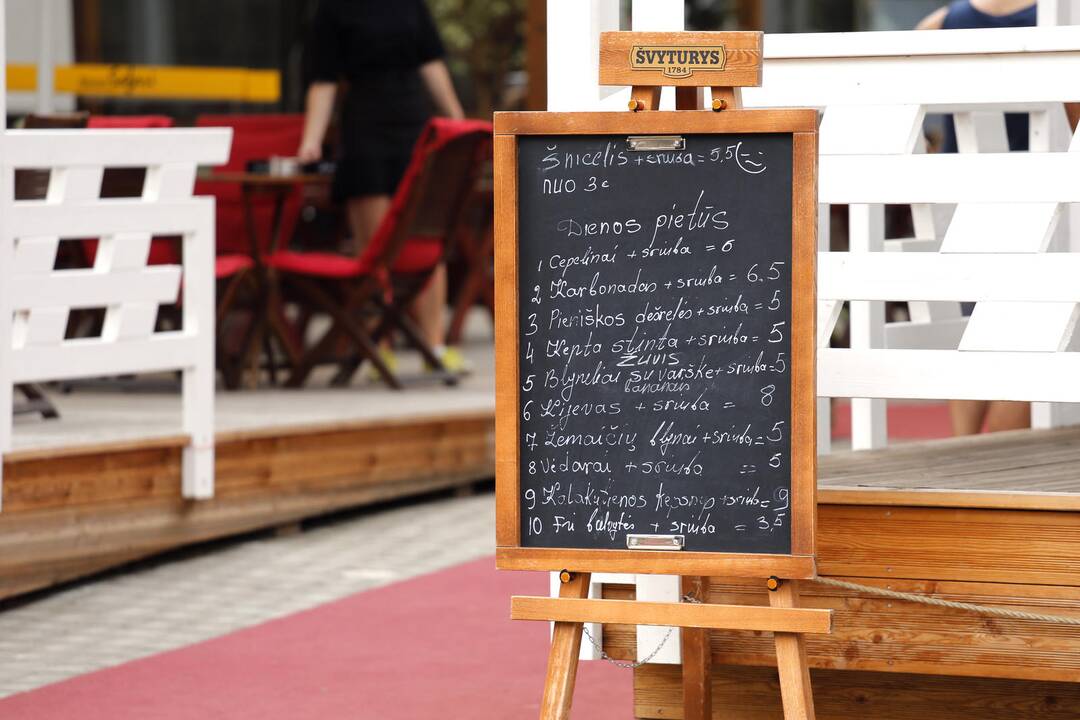 ŠVYTURYS
1784
Šnicelis + sriuba = 5,5
nuo 3€
Dienos pietūs
1 Cepelinai + sriuba = 6
2 Karbonadas + sriuba = 6.5
3 Pieniškos dešrelės + sriuba = 5
4 Kepta stinta + sriuba = 5
žuvis
5 Blyneliai su varške + sriuba = 5
bananais
6 Kijevas + sriuba = 8
7 Žemaičių blynai + sriuba = 5
8 Vėdarai + sriuba = 5
9 Kalakutienos kepsnys + sriuba = 9
10 Fri bulvytės + sriuba = 3,5